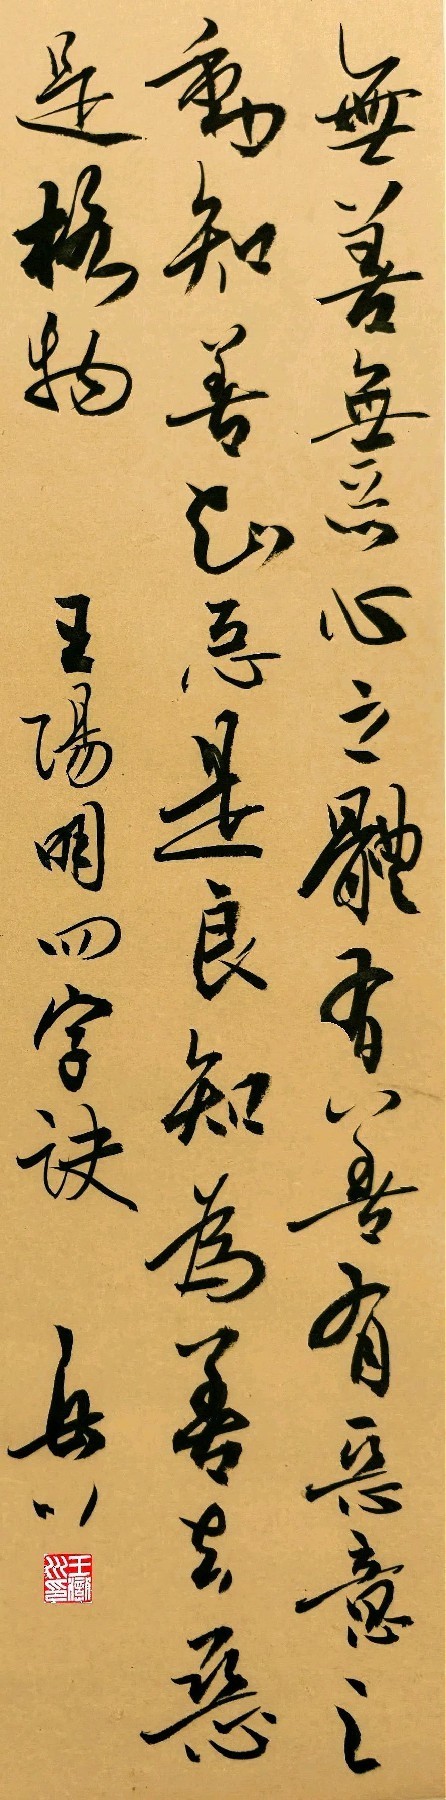 無善無惡心之體有善有惡意之
動知善知惡是良知為善去惡
是格物 王陽明四字訣